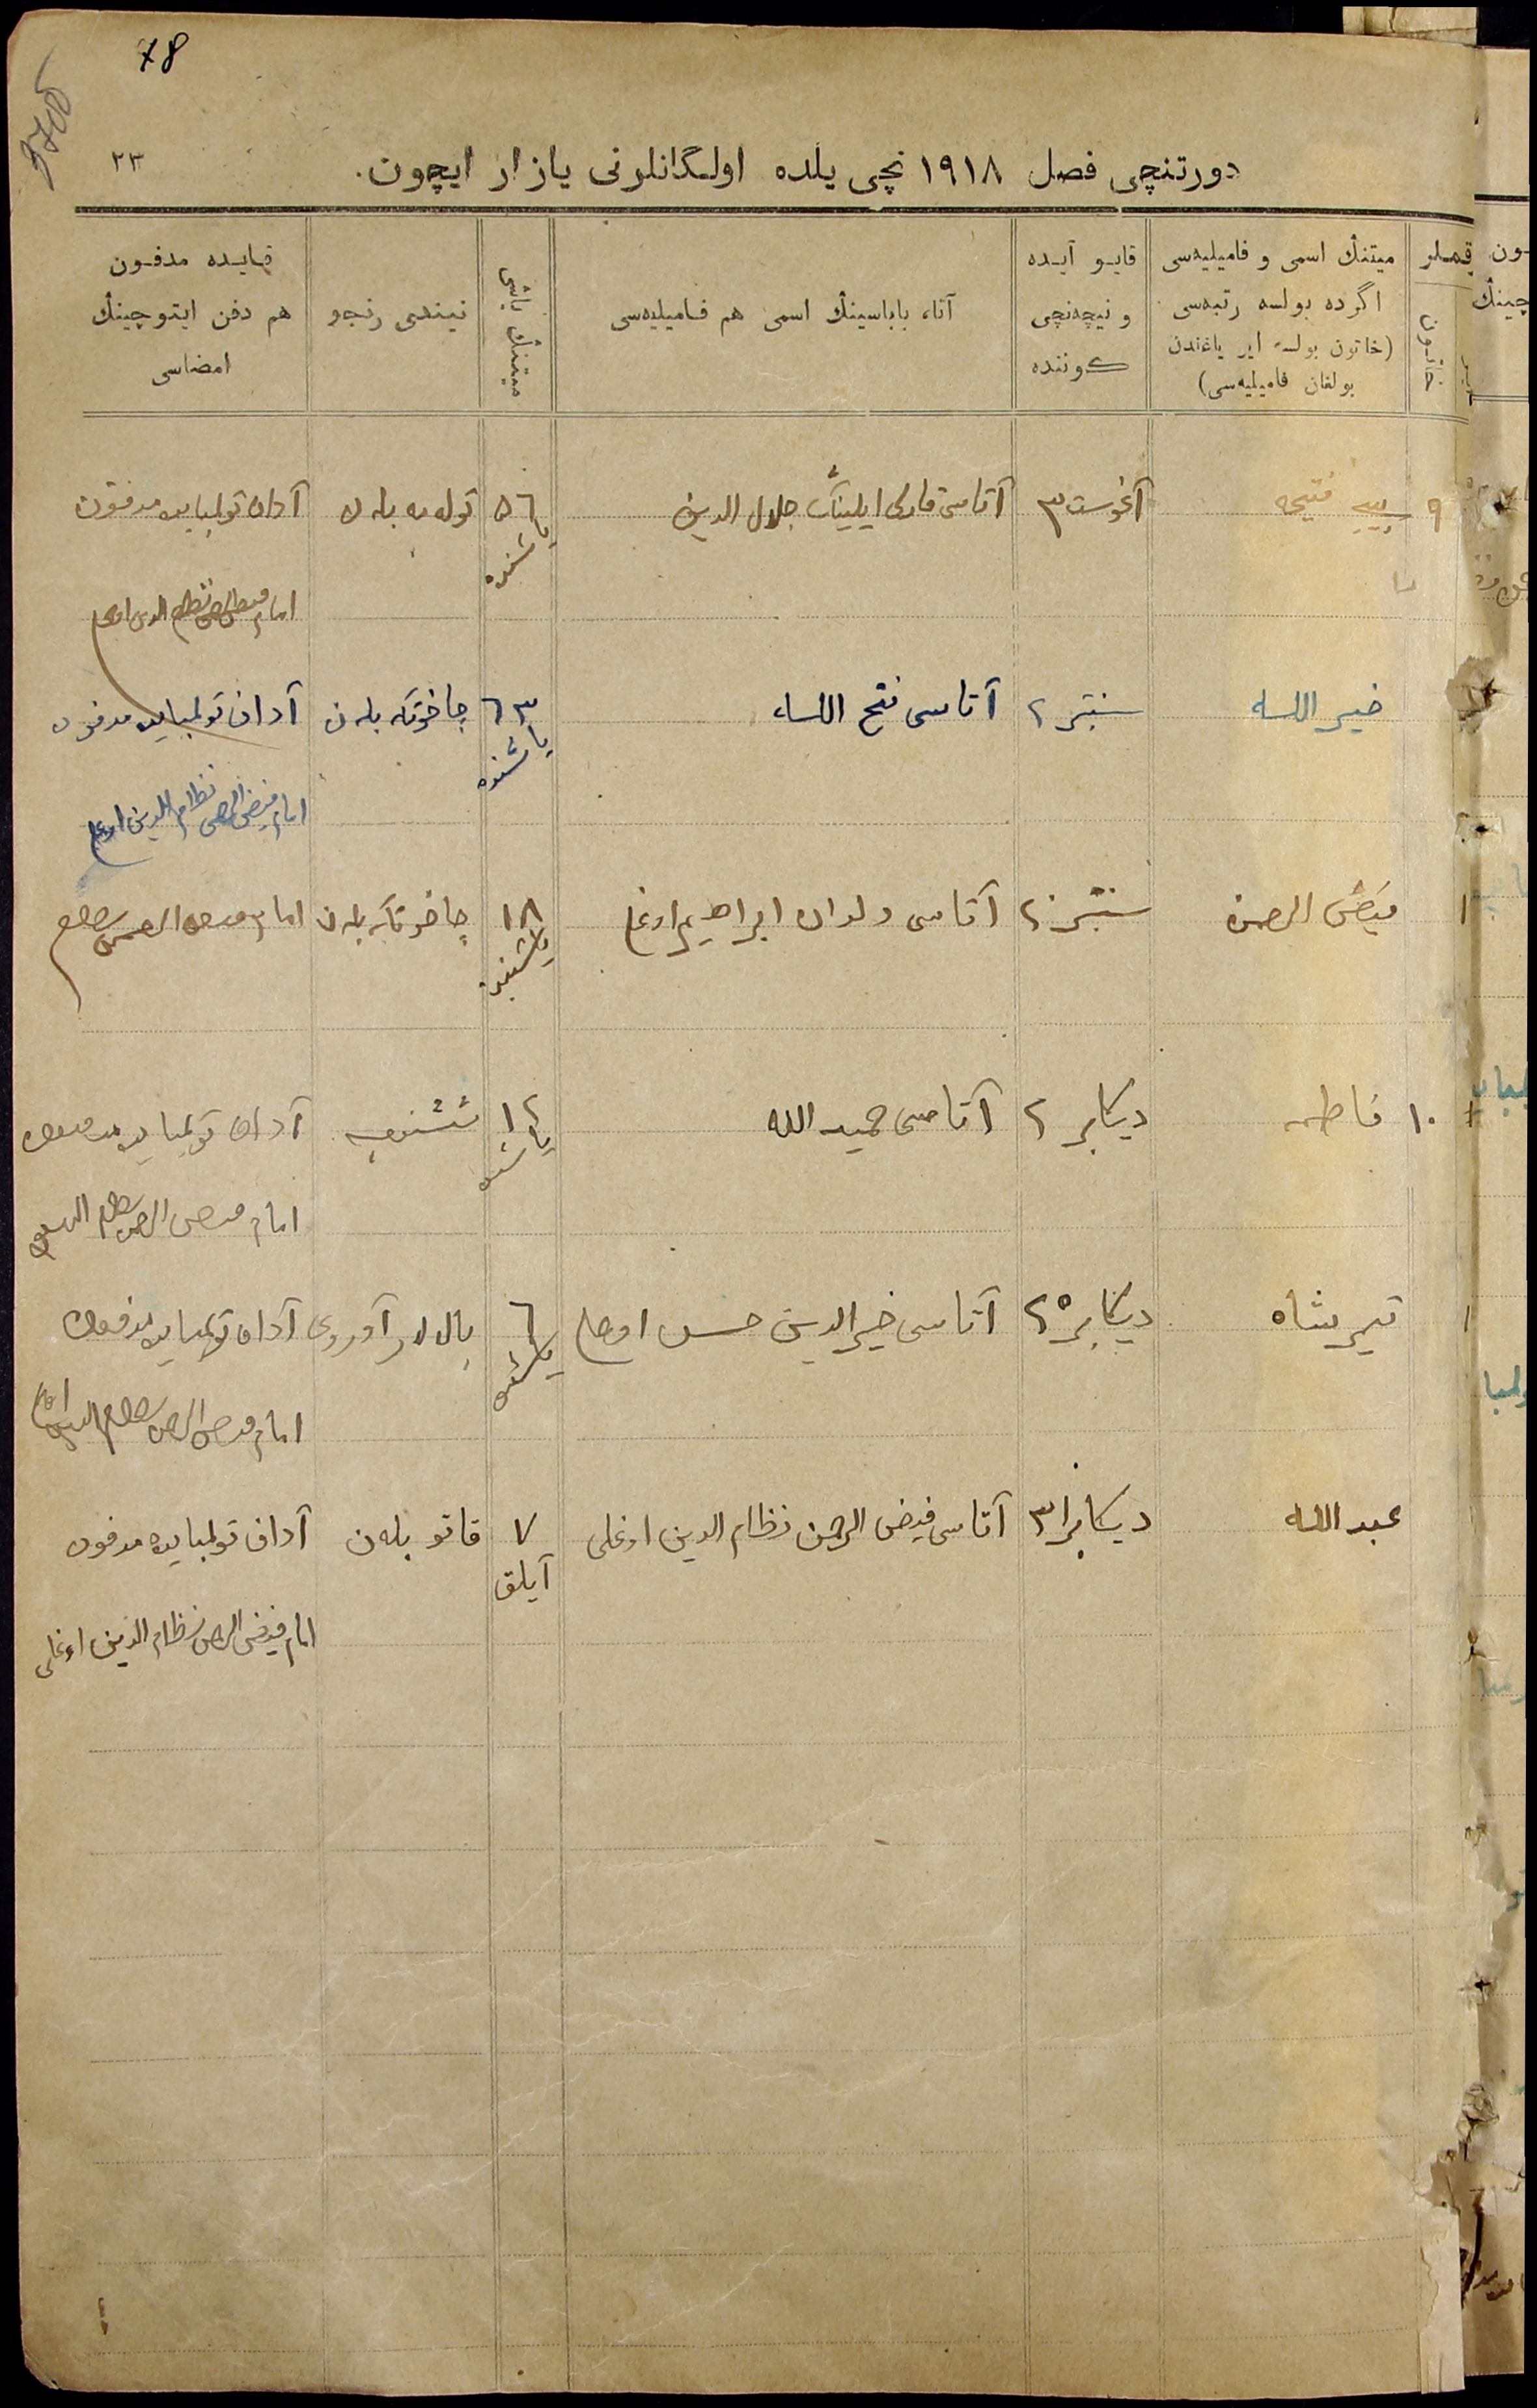 78
3700
۲۳
دورتنچی فصل ۱۹۱۸ نچی یلده اولگانلرنی یازار ایچون.
قملر
خاتون
میتنڭ اسمی و فامیلیەسی
اگرده بولسه رتبەسی
(خاتون بولسه ایر یاغندن
بولغان فامیلیەسی)
قایو آیده
و نیچەنچی
کوننده
آتا، باباسینڭ اسمی هم فامیلیەسی
میتنڭ یاشی
نیندی رنجو
قایده مدفون
هم دفن ایتوچینڭ
امضاسی
۹ بیبی فتیحه آغوست ۳ آتاسی جلال الدین ۵٦ یاشنده آداف تولمبایده مدفون
امام فیض الرحمن نظام الدین اوغلی
خیر الله سنتبر ۲ آتاسی فتح الله ٦۳ یاشنده چاخوتکه بلەن آداف تولمبایده مدفون
امام فیض الرحمن نظام الدین اوغلی
فیض الرحمن سنتبر ۲ آتاسی ولدان ابراهیم اوغلی ۱۸ یاشنده چاخوتکه بلەن امام فیض الرحمن نظام
۱۰ فاطمه دیکابر ۲ آتاسی حمید الله ۱۲ یاشنده آداف تولمبایده مدفون
امام فیض الرحمن نظام الدین
تیمرشاه دیکابر ۲۵ آتاسی خیرالدین حسن اوغلی ٦ یاشنده بالالر آوروی آداف تولمبایده مدفون
امام فیض الرحمن نظام الدین اوغلی
عبد الله دیکابر ۳۱ آتاسی فیض الرحمن نظام الدین اوغلی ۷ آیلق قاتو بلەن آداف تولمبایده مدفون
امام فیض الرحمن نظام الدین اوغلی